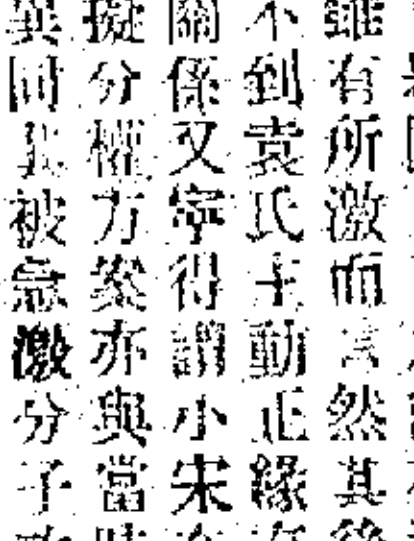 雖有所激而言然其後
不到袁氏主動正緣
關係又寧得謂小朱
擬分權方案亦與當時
異同其被急激分子